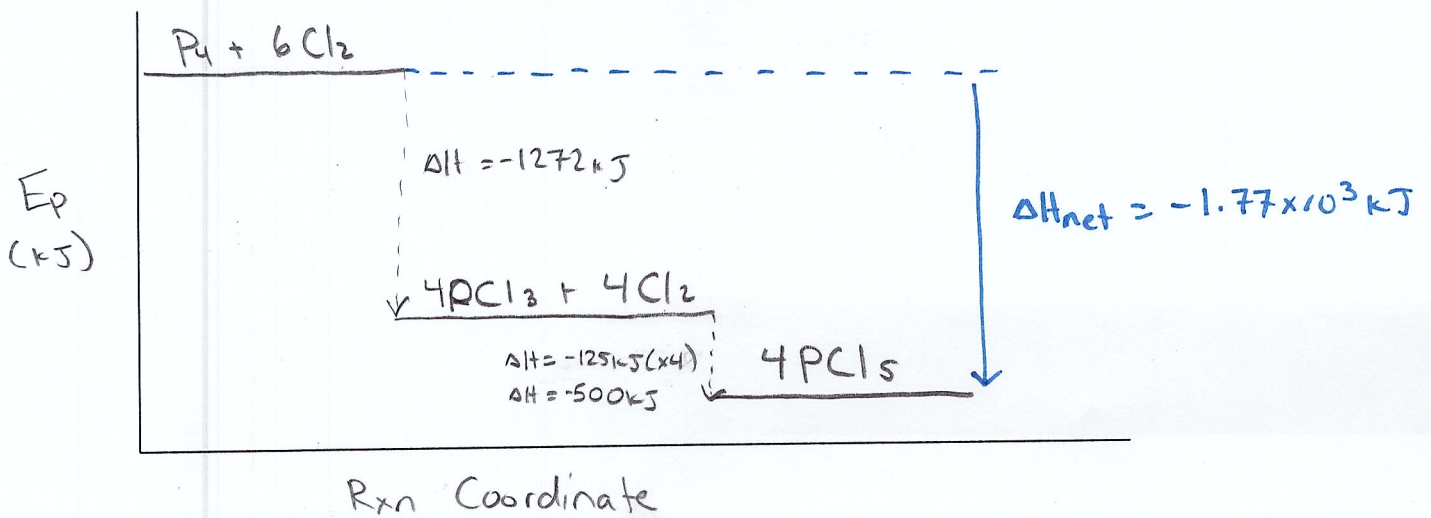 P₄ + 6Cl₂
ΔH = -1272kJ
Ep
(kJ)
ΔHnet = -1.77x10³ kJ
4PCl₃ + 4Cl₂
ΔH = -125kJ(x4)
ΔH = -500kJ
4PCl₅
Rxn Coordinate